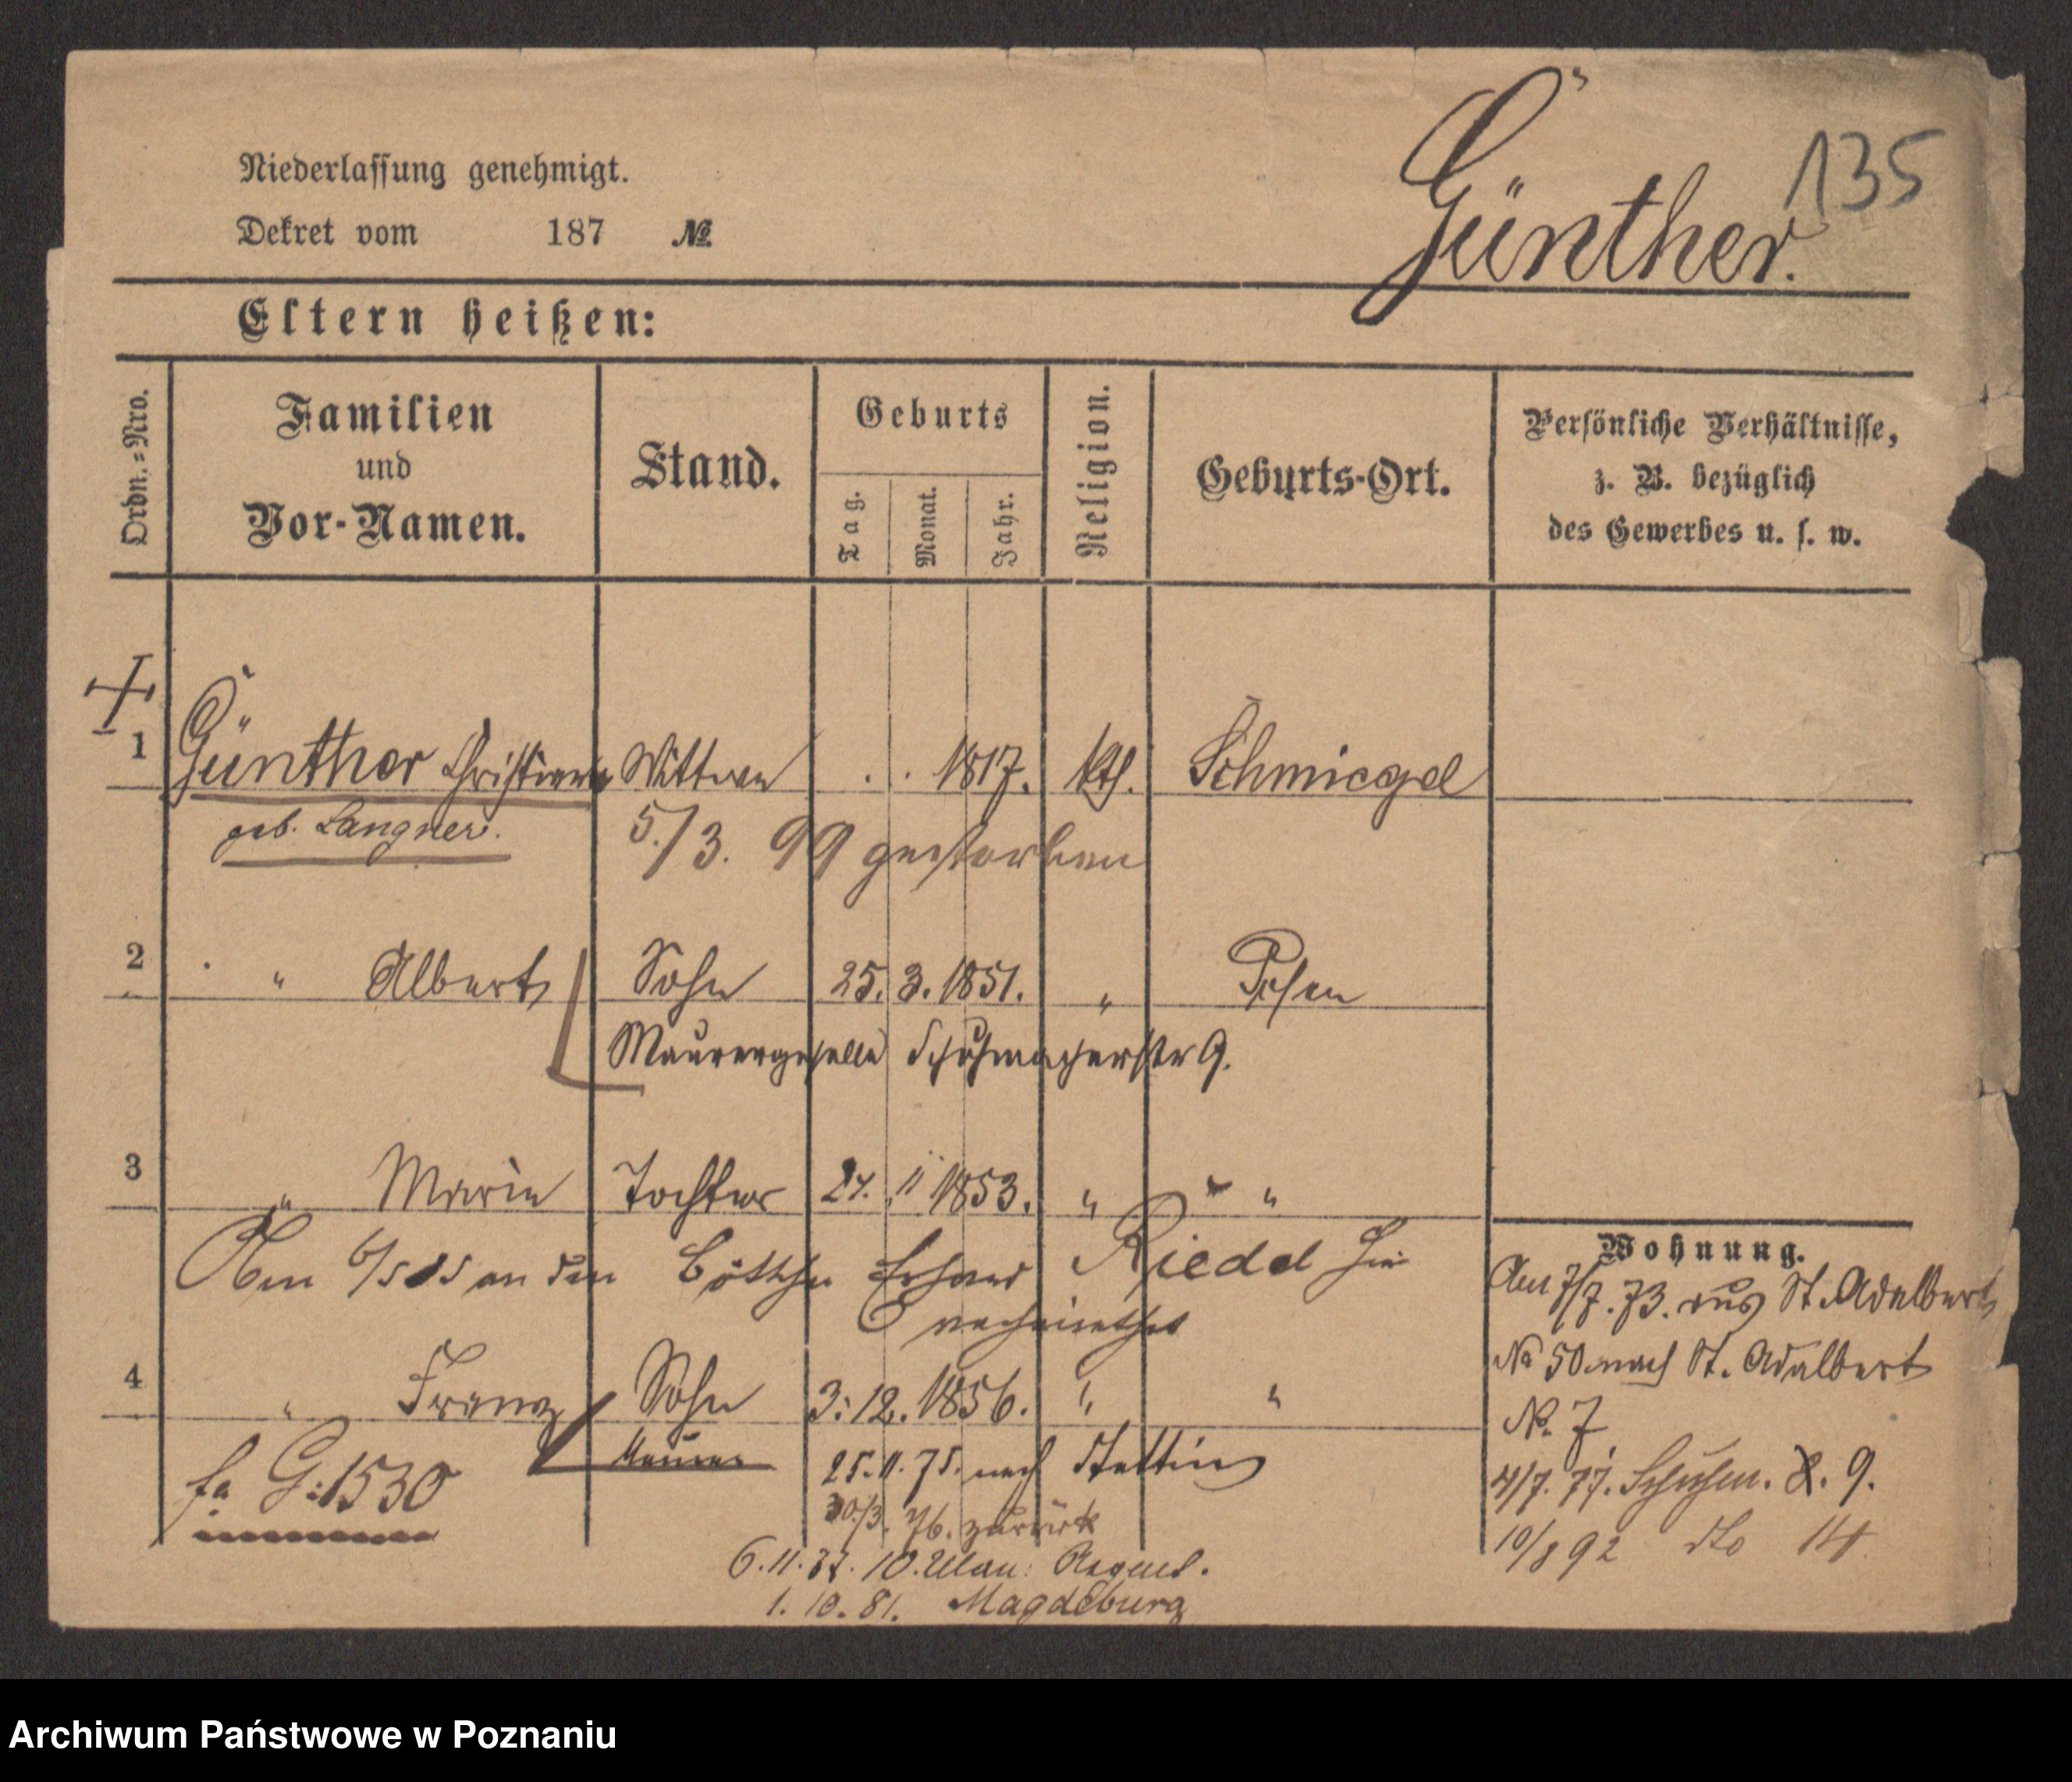 135
Günther.
Niederlassung genehmigt.
Dekret vom 187 №
Eltern heißen:
Ordn.=Nro.
Familien
und
Vor-Namen.
Stand.
Geburts
Tag.
Monat.
Jahr.
Religion.
Geburts-Ort.
Persönliche Verhältnisse,
z. B. bezüglich
des Gewerbes u. s. w.
1 Günther Christiane Wittwe . . 1817. kth. Schmiegel
geb. Langner. 5./3. 99 gestorben
2 " Albert Sohn 25. 3. 1851. " Posen
Maurergeselle Schuhmacherstr 9.
3 " Marie Tochter 24. 11 1853. " "
Am 6/5 85 an den Böttcher Erhard Riedel hier
verheirathet
4 " Franz Sohn 3. 12. 1856. " "
fa G: 1530 Maurer 25. 11. 75. nach Stettin
30./3. 76. zurück
6. 11. 77. 10. Ulan: Regmt.
1. 10. 81. Magdeburg
Wohnung.
Am 7/7. 73. aus St. Adalbert
No 50 nach St. Adalbert
No. 7
4/7. 77. Schuhm. 8. 9.
10/8 92 dto 14
Archiwum Państwowe w Poznaniu